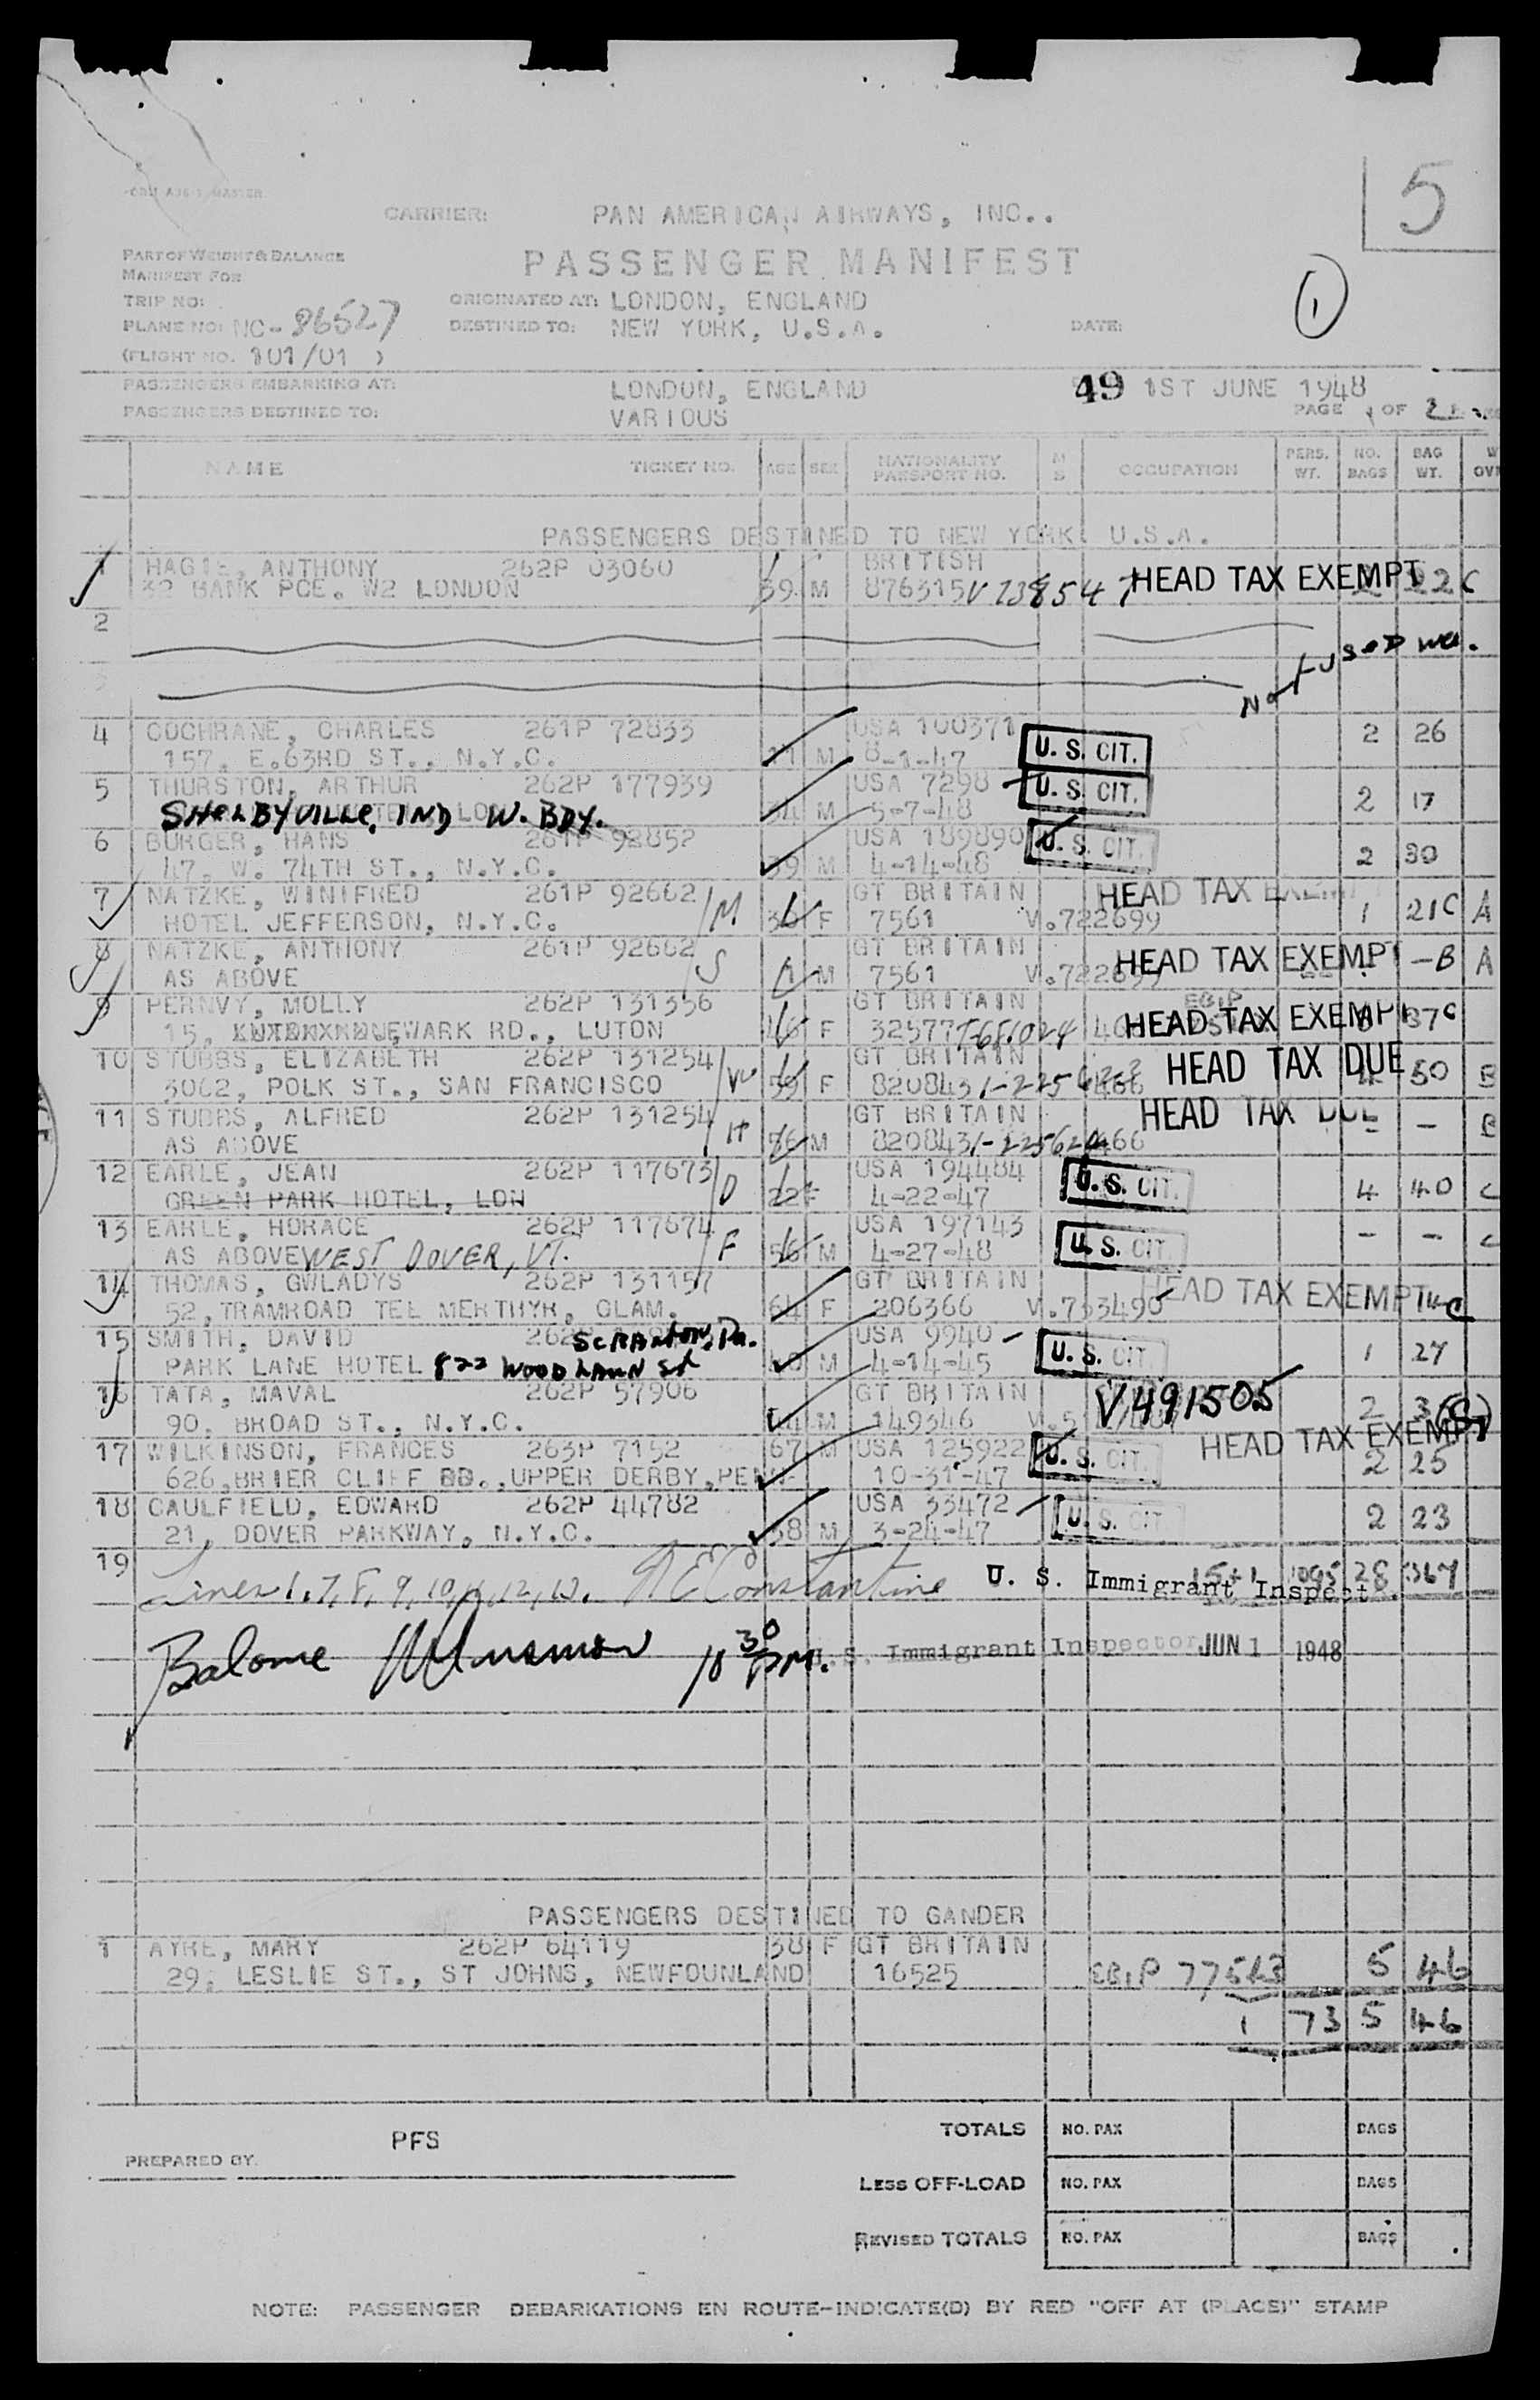 5
CARRIER: PAN AMERICAN AIRWAYS, INC..
PART OF WEIGHT & BALANCE
PASSENGER MANIFEST
MANIFEST FOR
1
TRIP NO: ORIGINATED AT: LONDON, ENGLAND
PLANE NO: NC-86527 DESTINED TO: NEW YORK, U.S.A. DATE:
(FLIGHT NO. 101/01 )
PASSENGERS EMBARKING AT: LONDON, ENGLAND 49 1ST JUNE 1948
PASSENGERS DESTINED TO: VARIOUS PAGE 1 OF 2
NAME TICKET NO. AGE SEX NATIONALITY PASSPORT NO. M S OCCUPATION PERS. WT. NO. BAGS BAG WT.
PASSENGERS DESTINED TO NEW YORK U.S.A.
1 HAGIE, ANTHONY 262P 03060 BRITISH
32 BANK PCE. W2 LONDON 39 M 876315 V738547 HEAD TAX EXEMPT 22 C
2
Not used
4 COCHRANE, CHARLES 261P 72833 USA 100371 2 26
157, E.63RD ST., N.Y.C. M 8-1-47 U. S. CIT.
5 THURSTON, ARTHUR 262P 177939 USA 7298 U. S. CIT. 2 17
SHELBYVILLE, IND W. BDY. M 5-7-48
6 BURGER, HANS 261P 92852 USA 189890 U. S. CIT.
47, W. 74TH ST., N.Y.C. 39 M 4-14-48 2 30
7 NATZKE, WINIFRED 261P 92662 M GT BRITAIN HEAD TAX
HOTEL JEFFERSON, N.Y.C. F 7561 V.722699 1 21C A
8 NATZKE, ANTHONY 261P 92662 S GT BRITAIN HEAD TAX EXEMPT -B A
AS ABOVE M 7561
9 PERNVY, MOLLY 262P 131356 GT BRITAIN
15, NEWARK RD., LUTON F 32577 HEAD TAX EXEMPT 37 C
10 STUBBS, ELIZABETH 262P 131254 W GT BRITAIN HEAD TAX DUE
3062, POLK ST., SAN FRANCISCO 59 F 820843 50 B
11 STUBBS, ALFRED 262P 131254 H GT BRITAIN HEAD TAX DUE - - B
AS ABOVE 76 M 820843
12 EARLE, JEAN 262P 117673 D USA 194484 U. S. CIT.
GREEN PARK HOTEL, LON 22 F 4-22-47 4 40 C
13 EARLE, HORACE 262P 117674 F USA 197143 U. S. CIT. - - C
AS ABOVE WEST DOVER, VT. 56 M 4-27-48
14 THOMAS, GWLADYS 262P 131157 GT BRITAIN HEAD TAX EXEMPT
52, TRAMROAD TEL MERTHYR, GLAM. 64 F 206366 V.753490 C
15 SMITH, DAVID SCRANTON, Pa. USA 9940 U. S. CIT. 1 27
PARK LANE HOTEL 822 WOODLAWN St M 4-14-45
16 TATA, MAVAL 262P 57906 GT BRITAIN V491505 2
90, BROAD ST., N.Y.C. M 149346 HEAD TAX EXEMPT
17 WILKINSON, FRANCES 263P 7152 67 M USA 125922 U. S. CIT. 2 25
626, BRIER CLIFF BD., UPPER DERBY, PENN 10-31-47
18 CAULFIELD, EDWARD 262P 44782 USA 33472 U. S. CIT.
21, DOVER PARKWAY, N.Y.C. 58 M 3-24-47 2 23
19 Lines 1, 7, 8, 9, 10, 11, 12, 13. Constantine U. S. Immigrant Inspect 28 367
Balance 10 30 P.M. U.S. Immigrant Inspector JUN 1 1948
PASSENGERS DESTINED TO GANDER
1 AYRE, MARY 262P 64119 38 F GT BRITAIN
29, LESLIE ST., ST JOHNS, NEWFOUNLAND 16525 EBIP 77543 5 46
1 73 5 46
TOTALS NO. PAX BAGS
PFS
PREPARED BY.
LESS OFF-LOAD NO. PAX BAGS
REVISED TOTALS NO. PAX BAGS
NOTE: PASSENGER DEBARKATIONS EN ROUTE-INDICATE(D) BY RED "OFF AT (PLACE)" STAMP